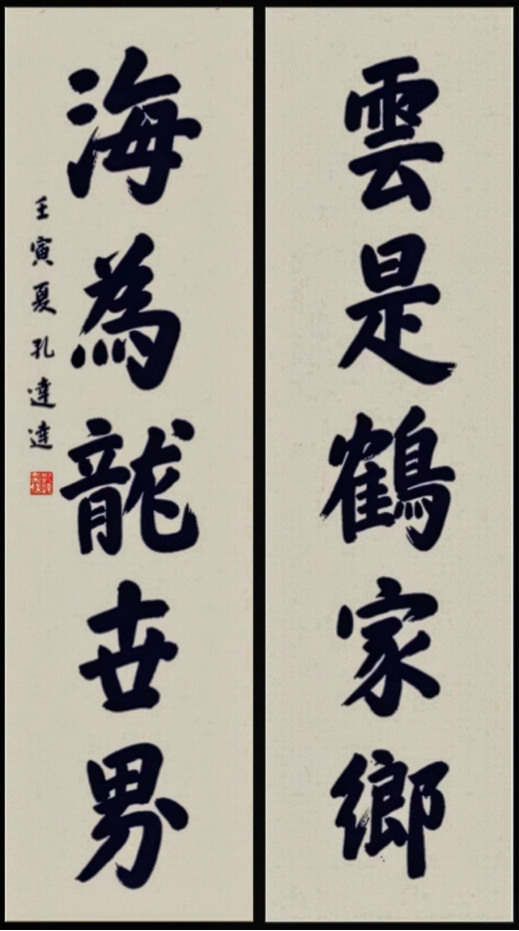 雲是鶴家鄉
海為龍世界
壬寅夏孔達達